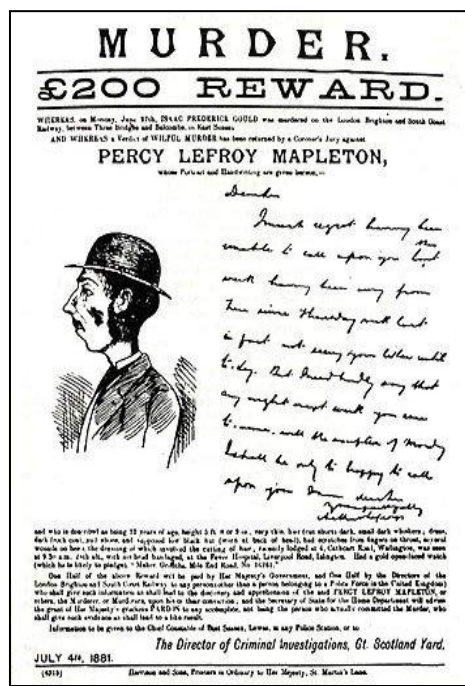 MURDER.
£200 REWARD.
WHEREAS, on Monday, June 27th, ISAAC FREDERICK GOULD was murdered on the London Brighton and South Coast
Railway, between Three Bridges and Balcombe, in East Sussex.
AND WHEREAS a Verdict of WILFUL MURDER has been returned by a Coroner's Jury against
PERCY LEFROY MAPLETON,
whose Portrait and Handwriting are given hereon,—
Dear Sir
I much regret having been
unable to call upon you
week having been away from
here since Thursday
in fact not seeing your letter until
to-day. But
any night next week you
with the exception of Monday
I shall be only to happy to call
upon you
and who is described as being 22 years of age, height 5 ft. 8 or 9 in., very thin, hair (cut short) dark, small dark whiskers; dress,
dark frock coat, and shoes, and supposed low black hat (worn at back of head), had scratches from fingers on throat, several
wounds on head, the dressing of which involved the cutting of hair, recently lodged at 4, Cathcart Road, Wallington, was seen
at 9.30 a.m. 28th ult., with his head bandaged, at the Fever Hospital, Liverpool Road, Islington. Had a gold open-faced watch
(which he is likely to pledge), "Maker, Griffiths, Mile End Road, No. 16261."
One Half of the above Reward will be paid by Her Majesty's Government, and One Half by the Directors of the
London Brighton and South Coast Railway to any person (other than a person belonging to a Police Force in the United Kingdom)
who shall give such information as shall lead to the discovery and apprehension of the said PERCY LEFROY MAPLETON, or
others, the Murderer, or Murderers, upon his or their conviction; and the Secretary of State for the Home Department will advise
the grant of Her Majesty's gracious PARDON to any accomplice, not being the person who actually committed the Murder, who
shall give such evidence as shall lead to a like result.
Information to be given to the Chief Constable of East Sussex, Lewes, at any Police Station, or to
The Director of Criminal Investigations, Gt. Scotland Yard.
JULY 4th, 1881.
(4313) Harrison and Sons, Printers in Ordinary to Her Majesty, St. Martin's Lane.